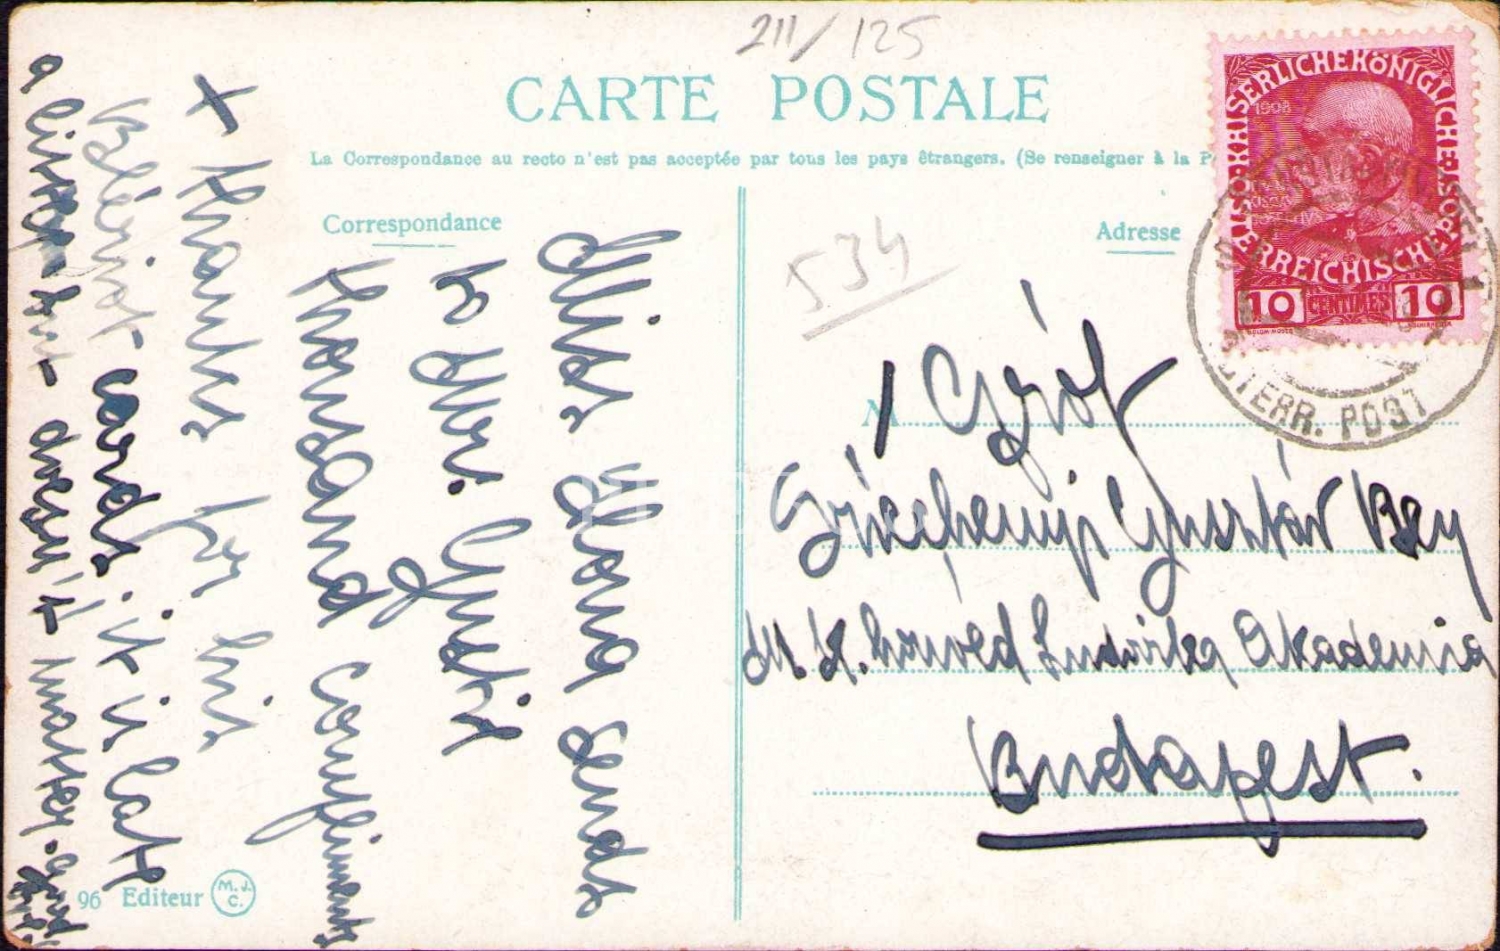 211/125
CARTE POSTALE
La Correspondance au recto n'est pas acceptée par tous les pays étrangers. (Se renseigner à la P
Correspondance
Adresse
534
Miss. Ilona sends
to Mr. Guszti
thousand compliments
+ thanks for his
Blériot cards. it is late
a little but doesn't matter. and
M
Gróf
Széchenyi Gusztáv Bey
M. K. honvéd Ludovika Akadémia
Budapest.
96 Editeur M. J. C.
KAISERLICHEKÖNIGLICHE
ÖSTERREICHISCHE POST
1908
10 CENTIMES 10
ÖSTERR. POST